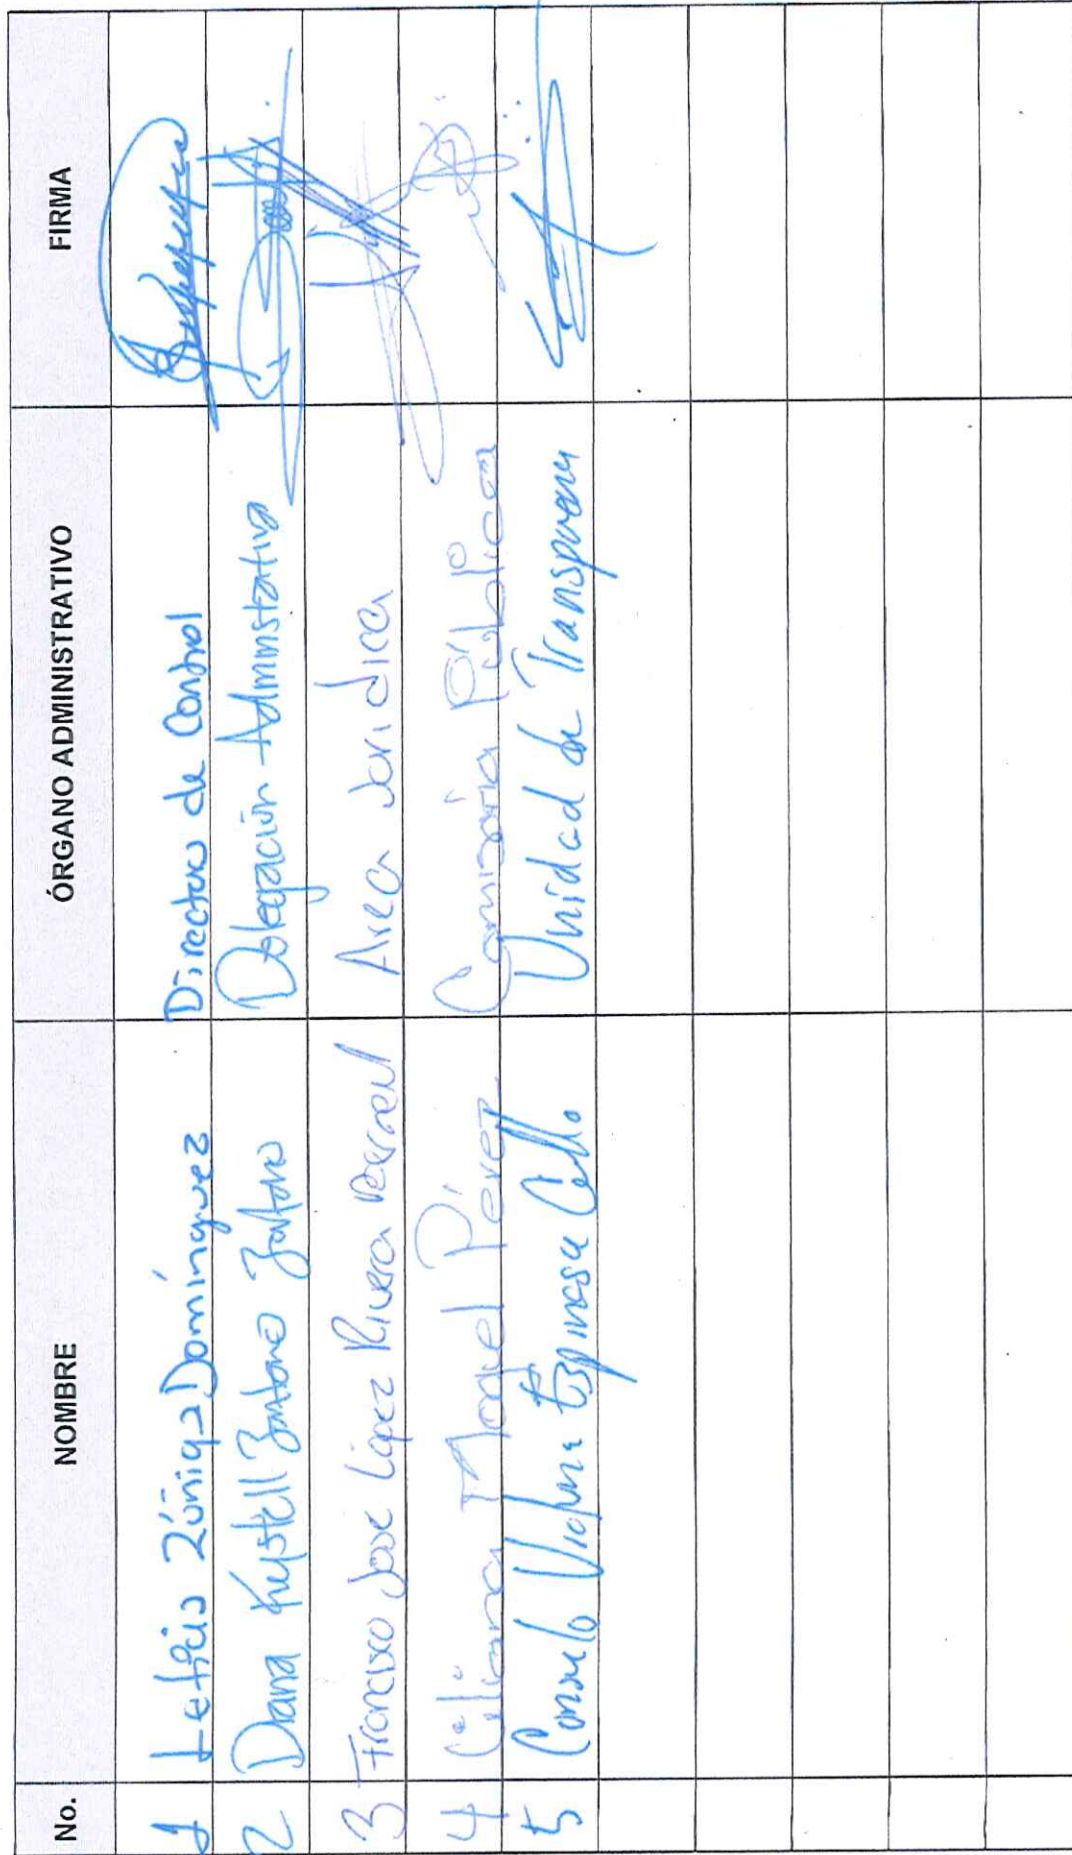 No. NOMBRE ÓRGANO ADMINISTRATIVO FIRMA
1 Leticia Zúñiga Domínguez Directora de Control
2 Diana Krystell Delegación Administrativa
3 Francisco José López Rivera Area Juridica
4 Celiana Moguel Pérez Comisaría Pública
5 Consuelo Espinosa Unidad de